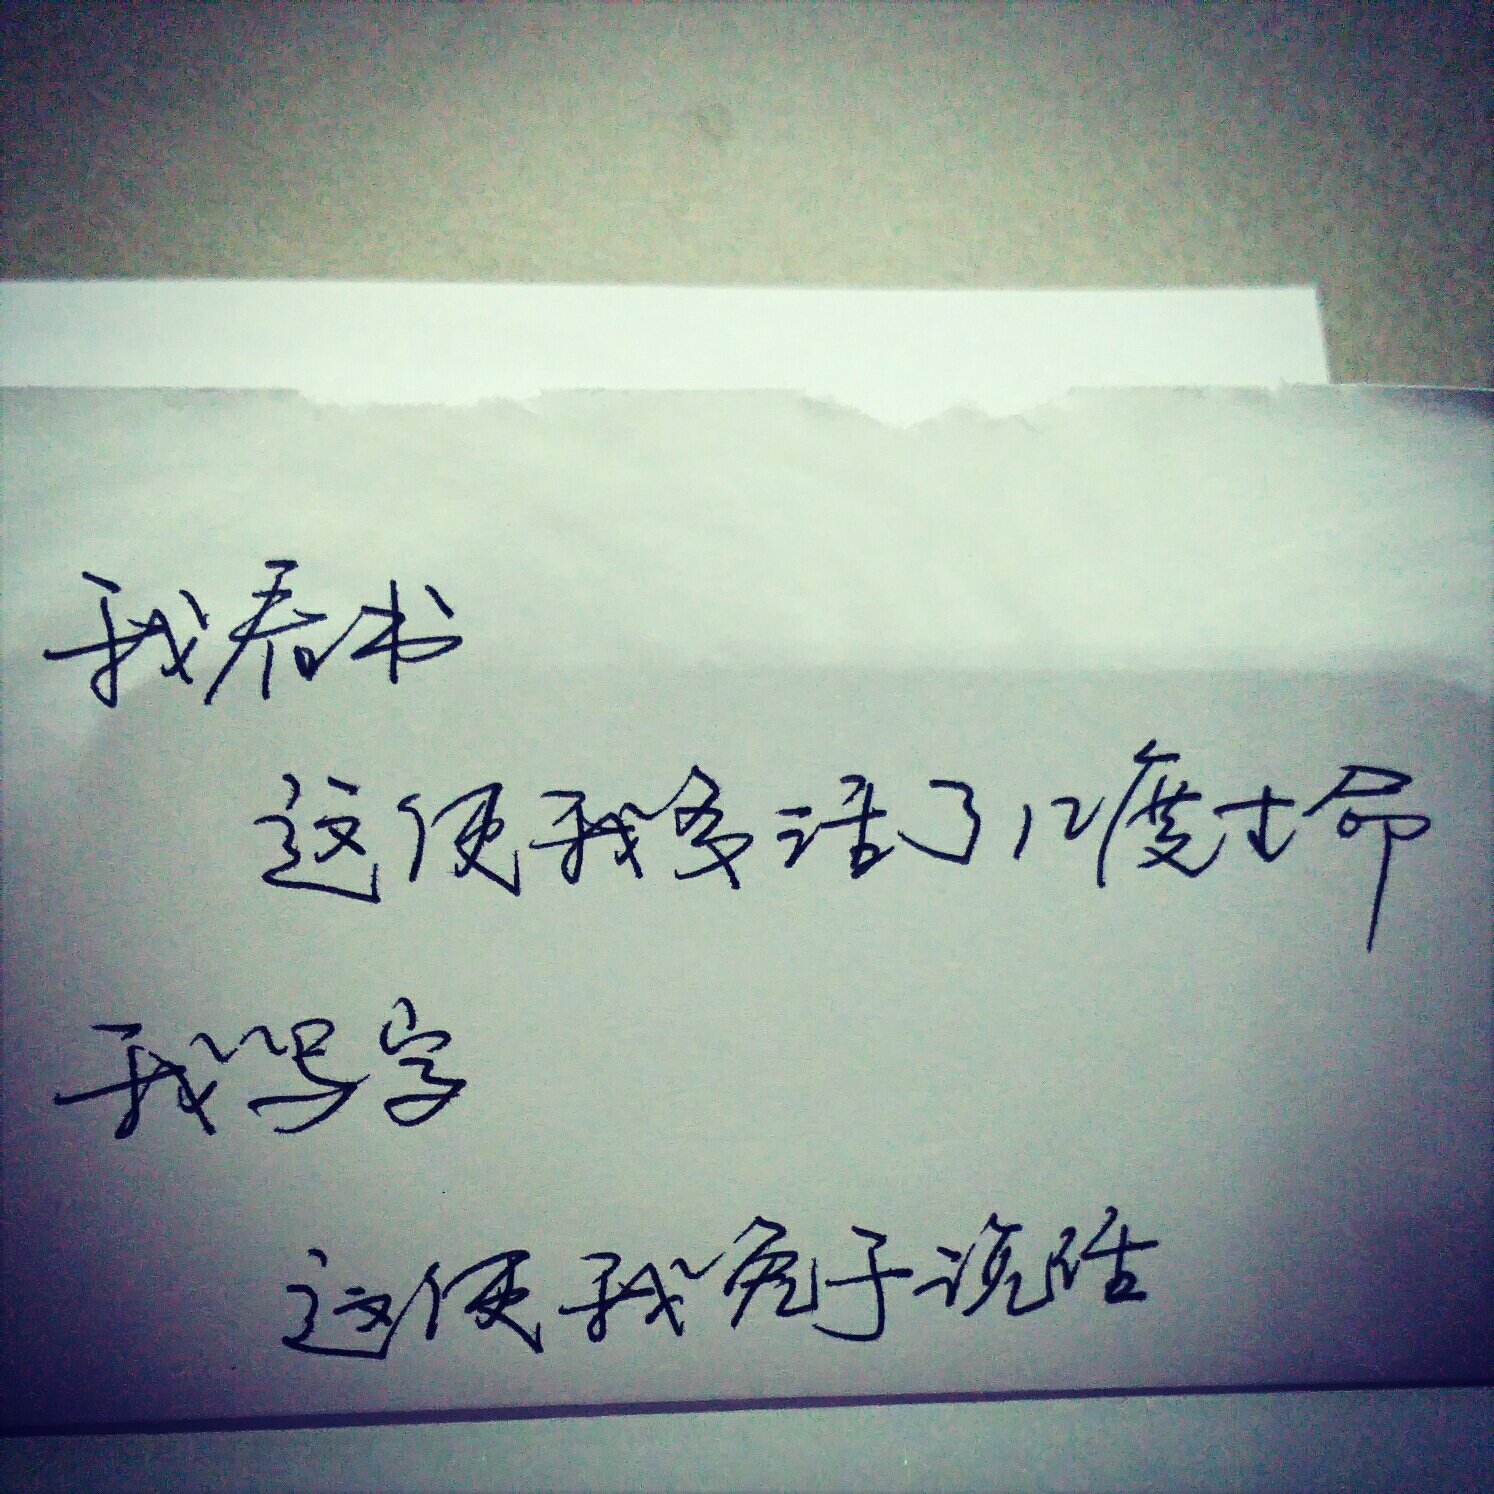 我看书
这使我多活了几度生命
我写字
这使我免于说话